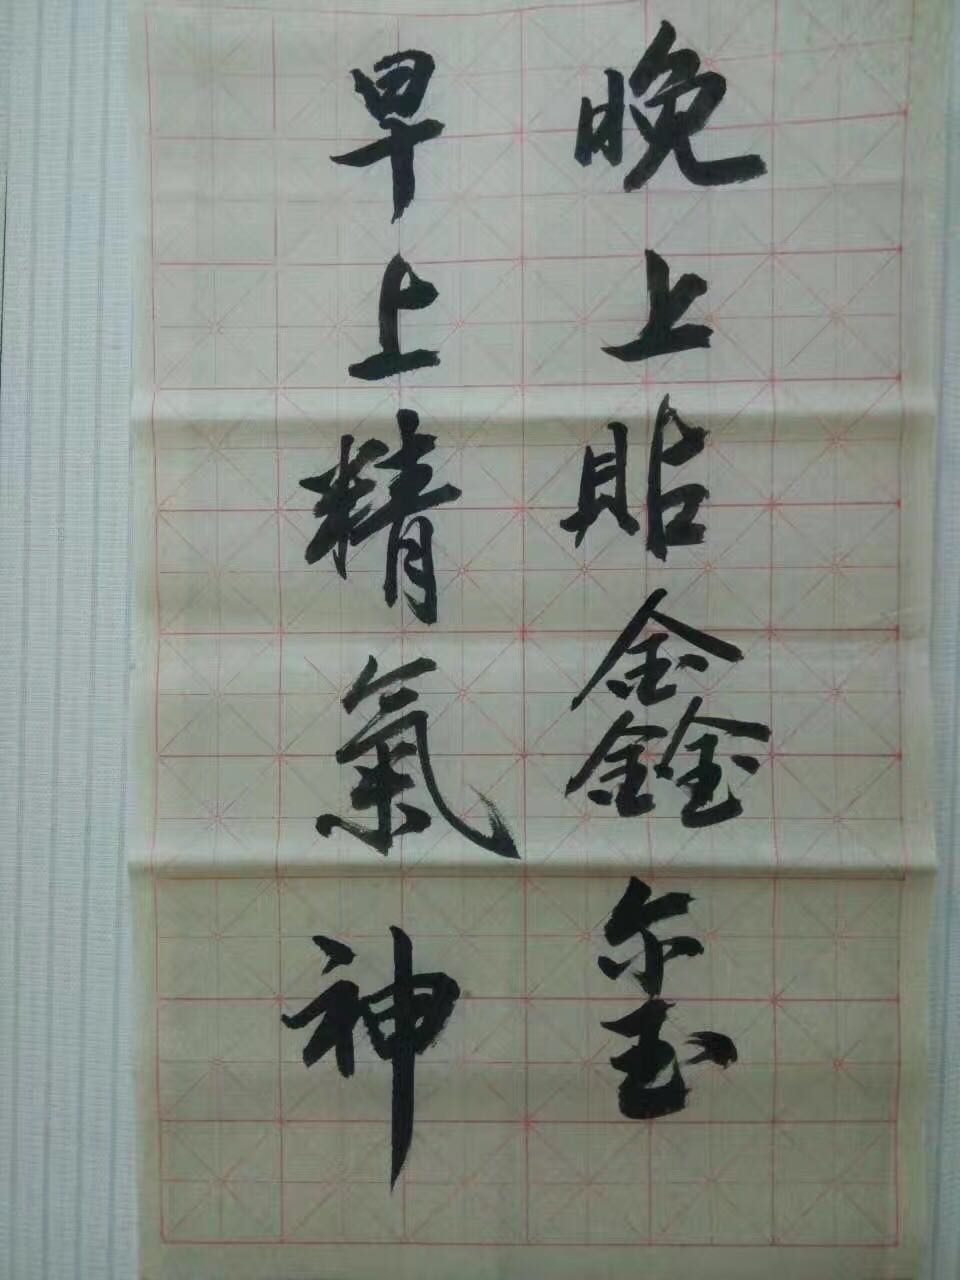 晚上貼鑫玺
早上精氣神